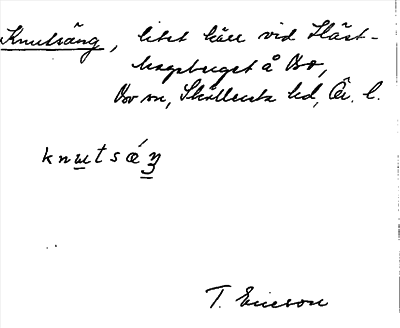 Knutsäng, litet kärr vid Häst-
hagsberget å Bo,
Bo sn, Skyllersta hd, Ör. l.
knutsǽŋ
T. Ericson